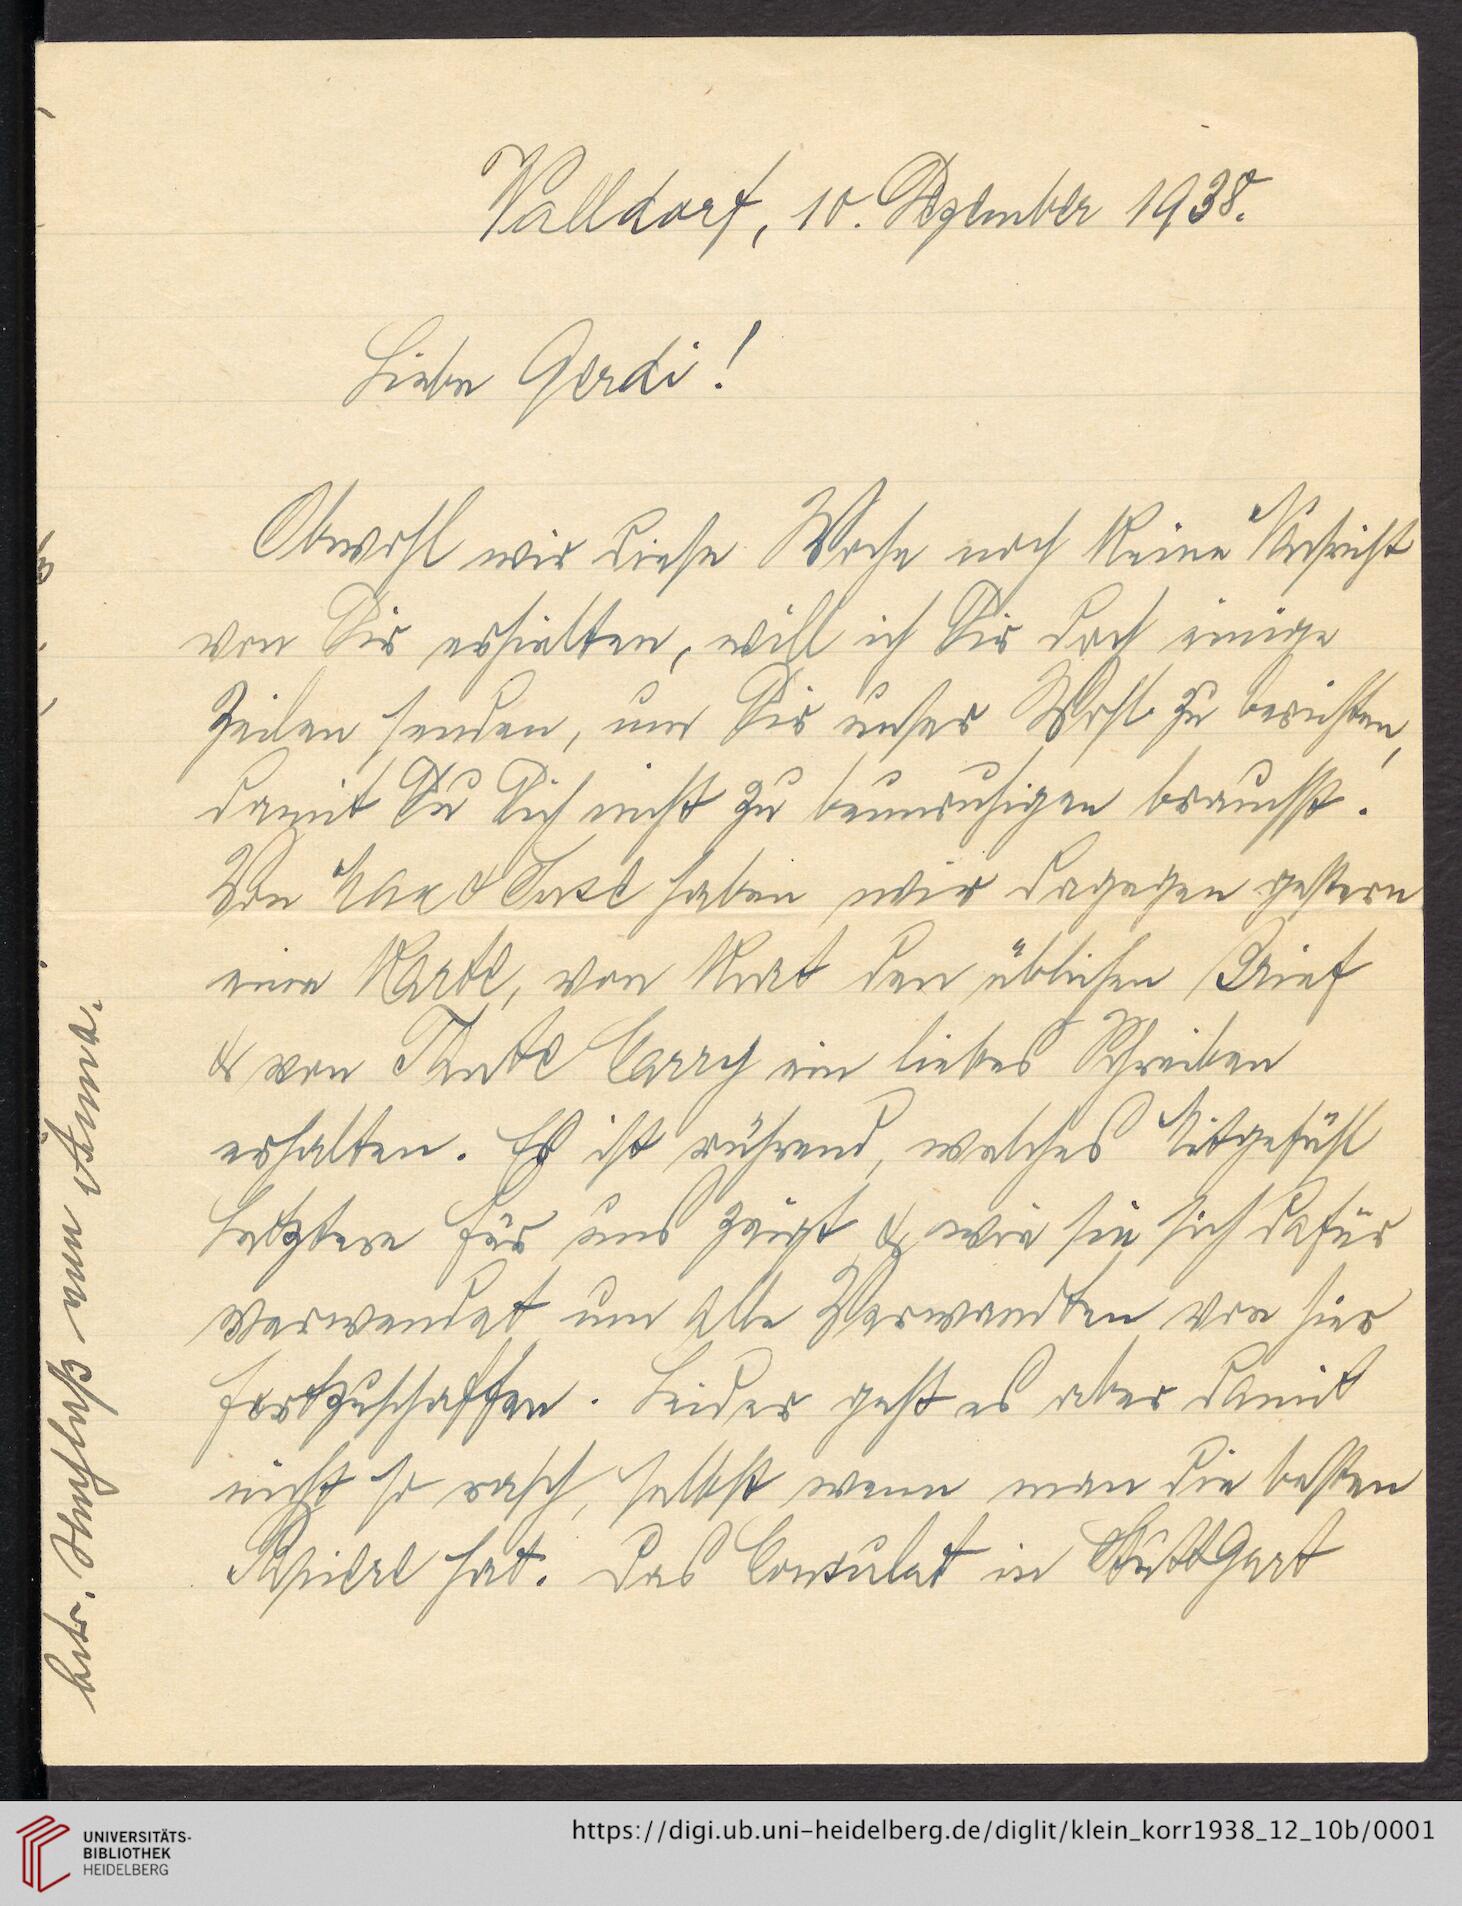 Walldorf, 10. Dezember 1938.
Liebe Gerdi!
Obwohl wir diese Woche noch keine Nachricht
von Dir erhielten, will ich Dir doch einige
Zeilen senden, um Dir unser Wohl zu berichten,
damit Du Dich nicht zu beunruhigen brauchst.
Von Max & haben wir dagegen gestern
eine Karte, von Kurt den üblichen Brief
& von Tante Carry ein liebes Schreiben
erhalten. Es ist rührend, welches Mitgefühl
Letztere für uns zeigt & wie sie sich dafür
verwendet um alle Verwandten von hier
fortzuschaffen. Leider geht es aber damit
nicht so rasch, selbst wenn man die besten
Papiere hat. Das Consulat in Stuttgart
betr. von Anna.
UNIVERSITÄTS-
BIBLIOTHEK
HEIDELBERG
https://digi.ub.uni-heidelberg.de/diglit/klein_korr1938_12_10b/0001